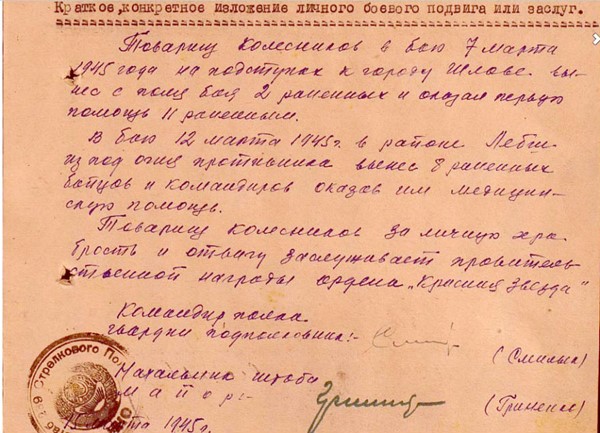 Краткое, конкретное изложение личного боевого подвига или заслуг.
Товарищ Колесников в бою 7 марта
1945 года на подступах к городу Шлове вы-
нес с поля боя 2 раненных и оказал первую
помощь 11 раненным.
В бою 12 марта 1945г. в районе Лебш
из под огня противника вынес 8 раненных
бойцов и командиров оказав им медицин-
скую помощь.
Товарищ Колесников за личную хра-
брость и отвагу заслуживает правитель-
ственной награды ордена „Красная Звезда"
Командир полка
гвардии подполковник:-
(Смилык)
Начальник штаба
Майор:
(Гриненко)
марта 1945г.
Стрелкового